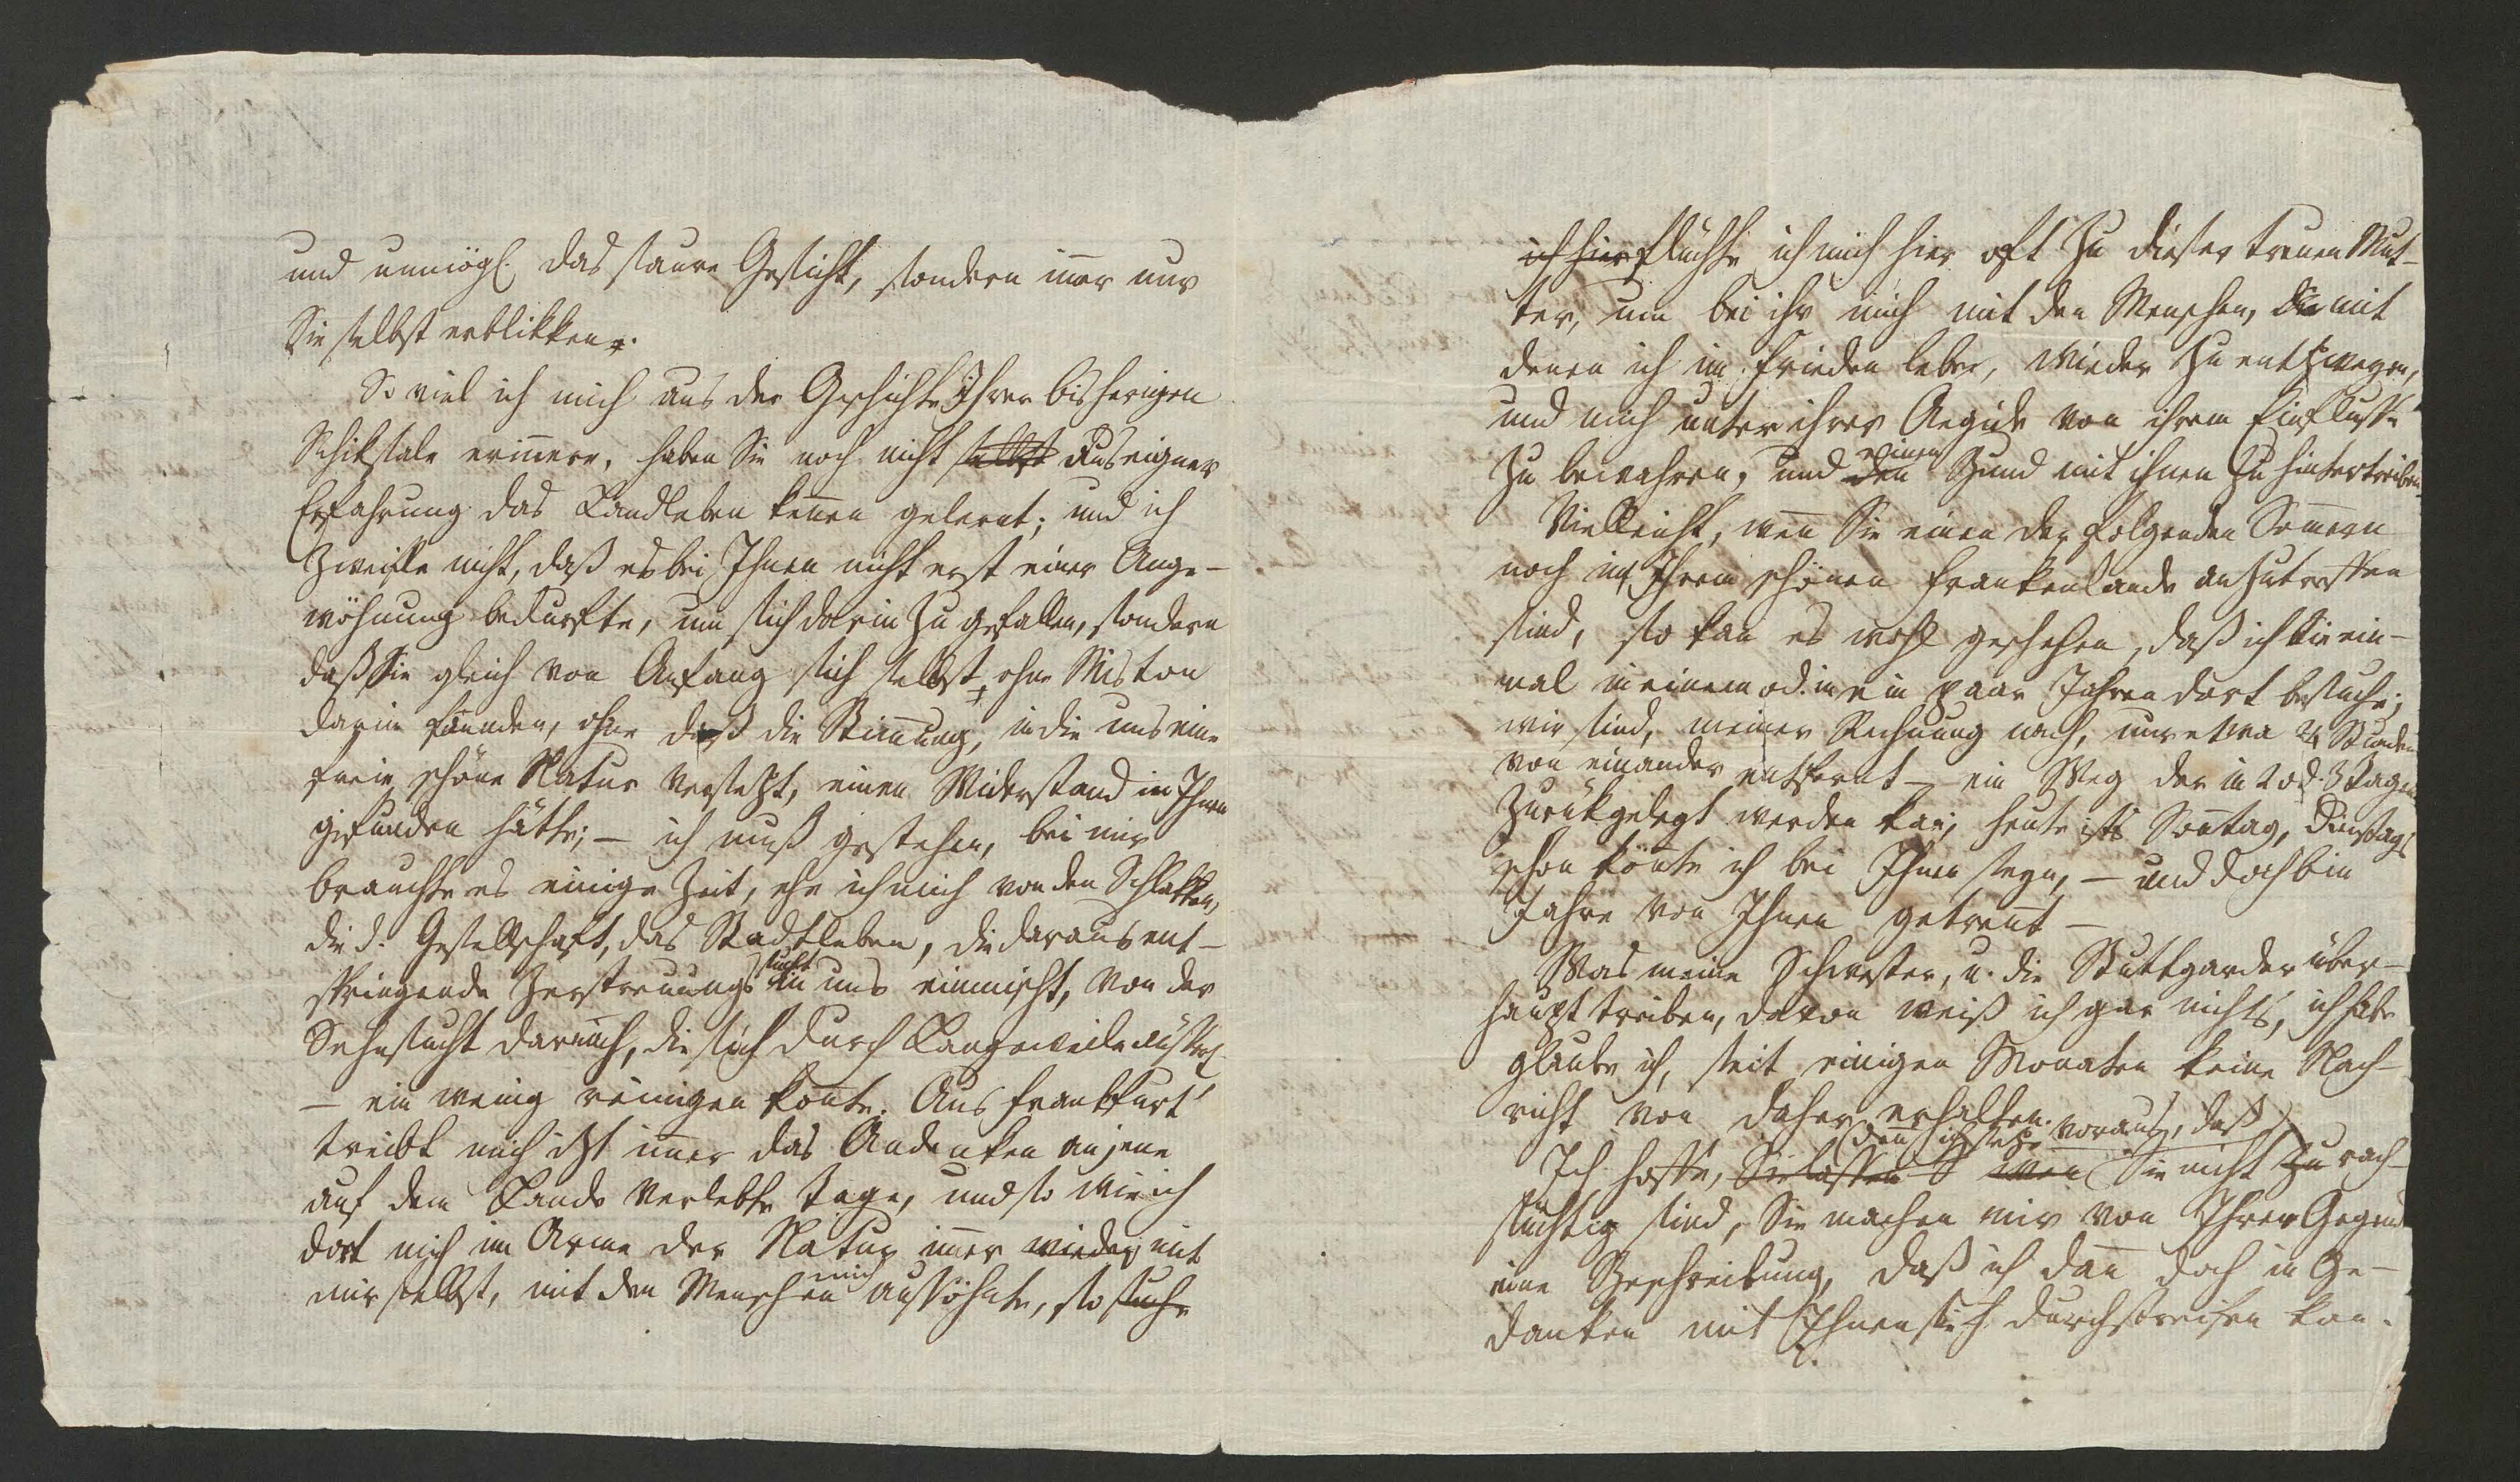 und unmögl. das saure Gesicht, sondern imer nur
Sie selbst erblikken.
So viel ich mich aus der Geschichte Ihrer bisherigen
Schiksale erinnere, haben Sie noch nicht selbst aus eigner
Erfahrung das Landleben kennen gelernt; und ich
zweifle nicht, daß es bei Ihnen nicht erst einer Ange-
wöhnung bedurfte, um sich darin zu gefallen, sondern
daß Sie gleich von Anfang sich selbst, ohne Miston
darin fanden, ohne daß die Stimung, in die uns eine
freie schöne Natur versetzt, einen Widerstand in Ihnen
gefunden hätte; — ich muß gestehen, bei mir
brauchte es einige Zeit, ehe ich mich von den Schlakken,
die d. Gesellschaft, das Stadtleben, die daraus ent-
springende Zerstreuungs
sucht
in uns einmischt, von der
Sehnsucht darnach, die sich durch Langeweile äussert
— ein wenig reinigen konte. Aus Frankfurt
treibt mich izt imer das Andenken an jene
auf dem Lande verlebte Tage, und so wie ich
dort mich im Arme der Natur imer wieder mit
mir selbst, mit den Menschen mich aussöhnte, so suche
ich hier flüchte ich mich hier oft zu dieser treuen Mut-
ter, um bei ihr mich mit den Menschen, die mit
denen ich im Frieden lebe, wieder zu entzweyen,
und mich unter ihrer Aegide von ihrem Einflusse
zu bewahren, und den einen Bund mit ihnen zu hintertreiben.
Vielleicht, wen Sie einen der folgenden Somern
noch in Ihrem schönen Frankenlande anzutreffen
sind, so kan es wohl geschehen, daß ich Sie ein-
mal in einem od. in ein paar Jahren dort besuche;
wir sind, meiner Rechnung nach, nur etwa 24 Stunden
von einander entfernt — ein Weg der in 2 od. 3 Tagen
zurükgelegt werden kan, heute ists Sontag, Dinstags
schon könte ich bei Ihnen seyn, — und doch bin
Jahre von Ihnen getrent —
Was meine Schwester, u. die Stuttgarder über-
haupt treiben, davon weiß ich gar nichts, ich habe
glaube ich, seit einigen Monaten keine Nach-
richt von daher erhalten.
den ich setze voraus, daß
Ich hoffe, Sie lassen S wen Sie nicht zu rach-
süchtig sind, Sie machen mir von Ihrer Gegend
eine Beschreibung, daß ich dan doch in Ge-
danken mit Ihnen sie durchstreifen kan.